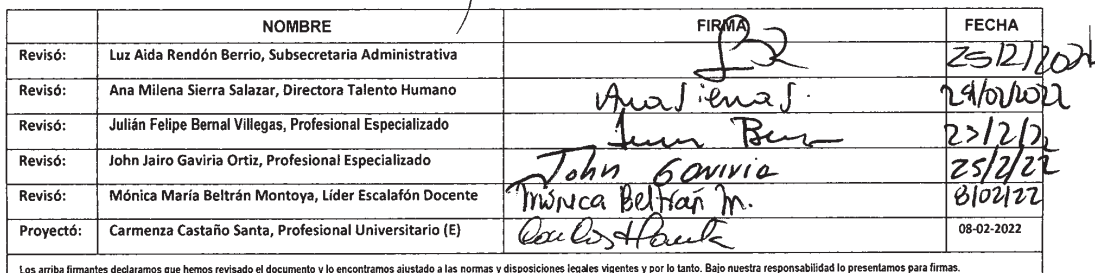 NOMBRE FIRMA FECHA
Revisó: Luz Aida Rendón Berrio, Subsecretaria Administrativa 25/2/2022
Revisó: Ana Milena Sierra Salazar, Directora Talento Humano Ana Sierra S. /02/2022
Revisó: Julián Felipe Bernal Villegas, Profesional Especializado
Revisó: John Jairo Gaviria Ortiz, Profesional Especializado John Gaviria 25/2/22
Revisó: Mónica María Beltrán Montoya, Líder Escalafón Docente Mónica Beltrán M. 8/02/22
Proyectó: Carmenza Castaño Santa, Profesional Universitario (E) 08-02-2022
Los arriba firmantes declaramos que hemos revisado el documento y lo encontramos ajustado a las normas y disposiciones legales vigentes y por lo tanto. Bajo nuestra responsabilidad lo presentamos para firmas.